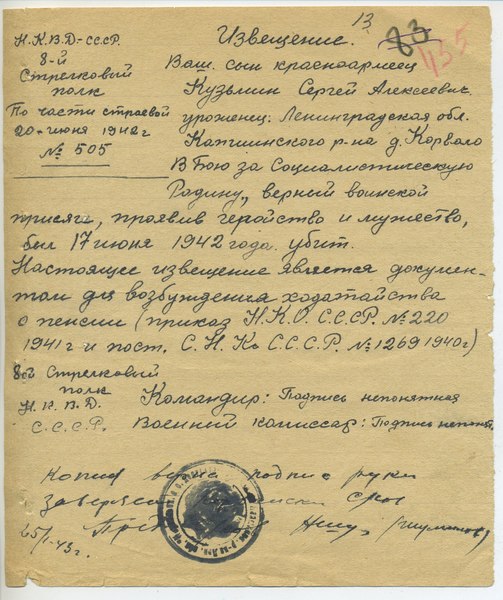 13
83
435
Н.К.В.Д-СССР.
8-й
Стрелковый
полк
По части строевой
20-июня 1942г
№ 505
Извещение.
Ваш. сын красноармеец
Кузьмин Сергей Алексеевич
уроженец. Ленинградская обл.
р-на д. Корвало
В бою за Социалистическую
Родину, верный воинской
присяге, проявив геройство и мужество,
был 17 июня 1942 года. убит.
Настоящее извещение является докумен-
том для возбуждения ходатайства
о пенсии (приказ Н.К.О. С.С.С.Р. № 220
1941г и пост. С.Н.Ко С.С.С.Р. № 1269 1940г)
8ой Стрелковый
полк
Н.К.В.Д.
С.С.С.Р.
Командир: Подпись непонятная
Военний комиссар: Подпись непонят.
Копия верна подпис руки
25/I-43г.